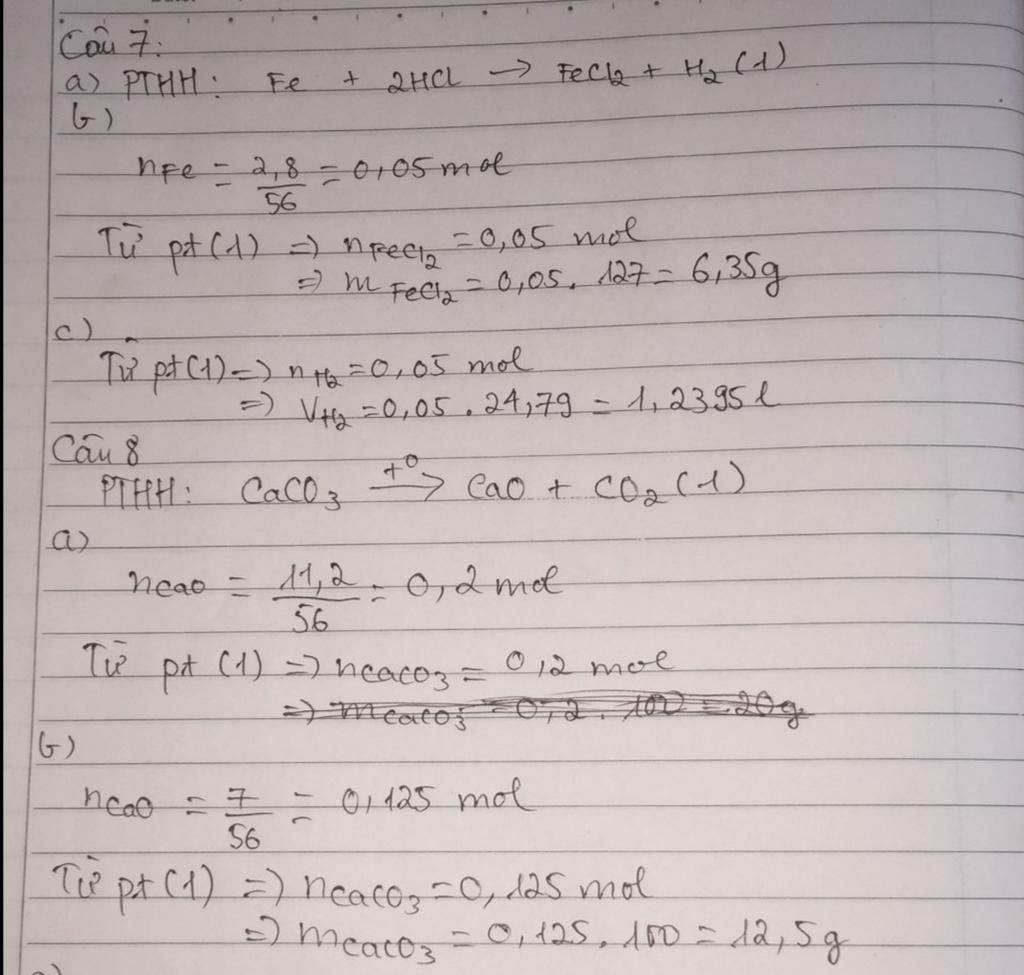 Câu 7:
a) PTHH: Fe + 2HCl → FeCl2 + H2 (1)
b)
nFe = 2,8/56 = 0,05 mol
Từ pt (1) => nFeCl2 = 0,05 mol
=> mFeCl2 = 0,05. 127 = 6,35g
c)
Từ pt (1) => nH2 = 0,05 mol
=> VH2 = 0,05 . 24,79 = 1,2395 l
Câu 8
PTHH: CaCO3 –t°→ CaO + CO2 (1)
a)
nCaO = 11,2/56 = 0,2 mol
Từ pt (1) => nCaCO3 = 0,2 mol
=> mCaCO3 = 0,2 . 100 = 20g
b)
nCaO = 7/56 = 0,125 mol
Từ pt (1) => nCaCO3 = 0,125 mol
=> mCaCO3 = 0,125. 100 = 12,5g